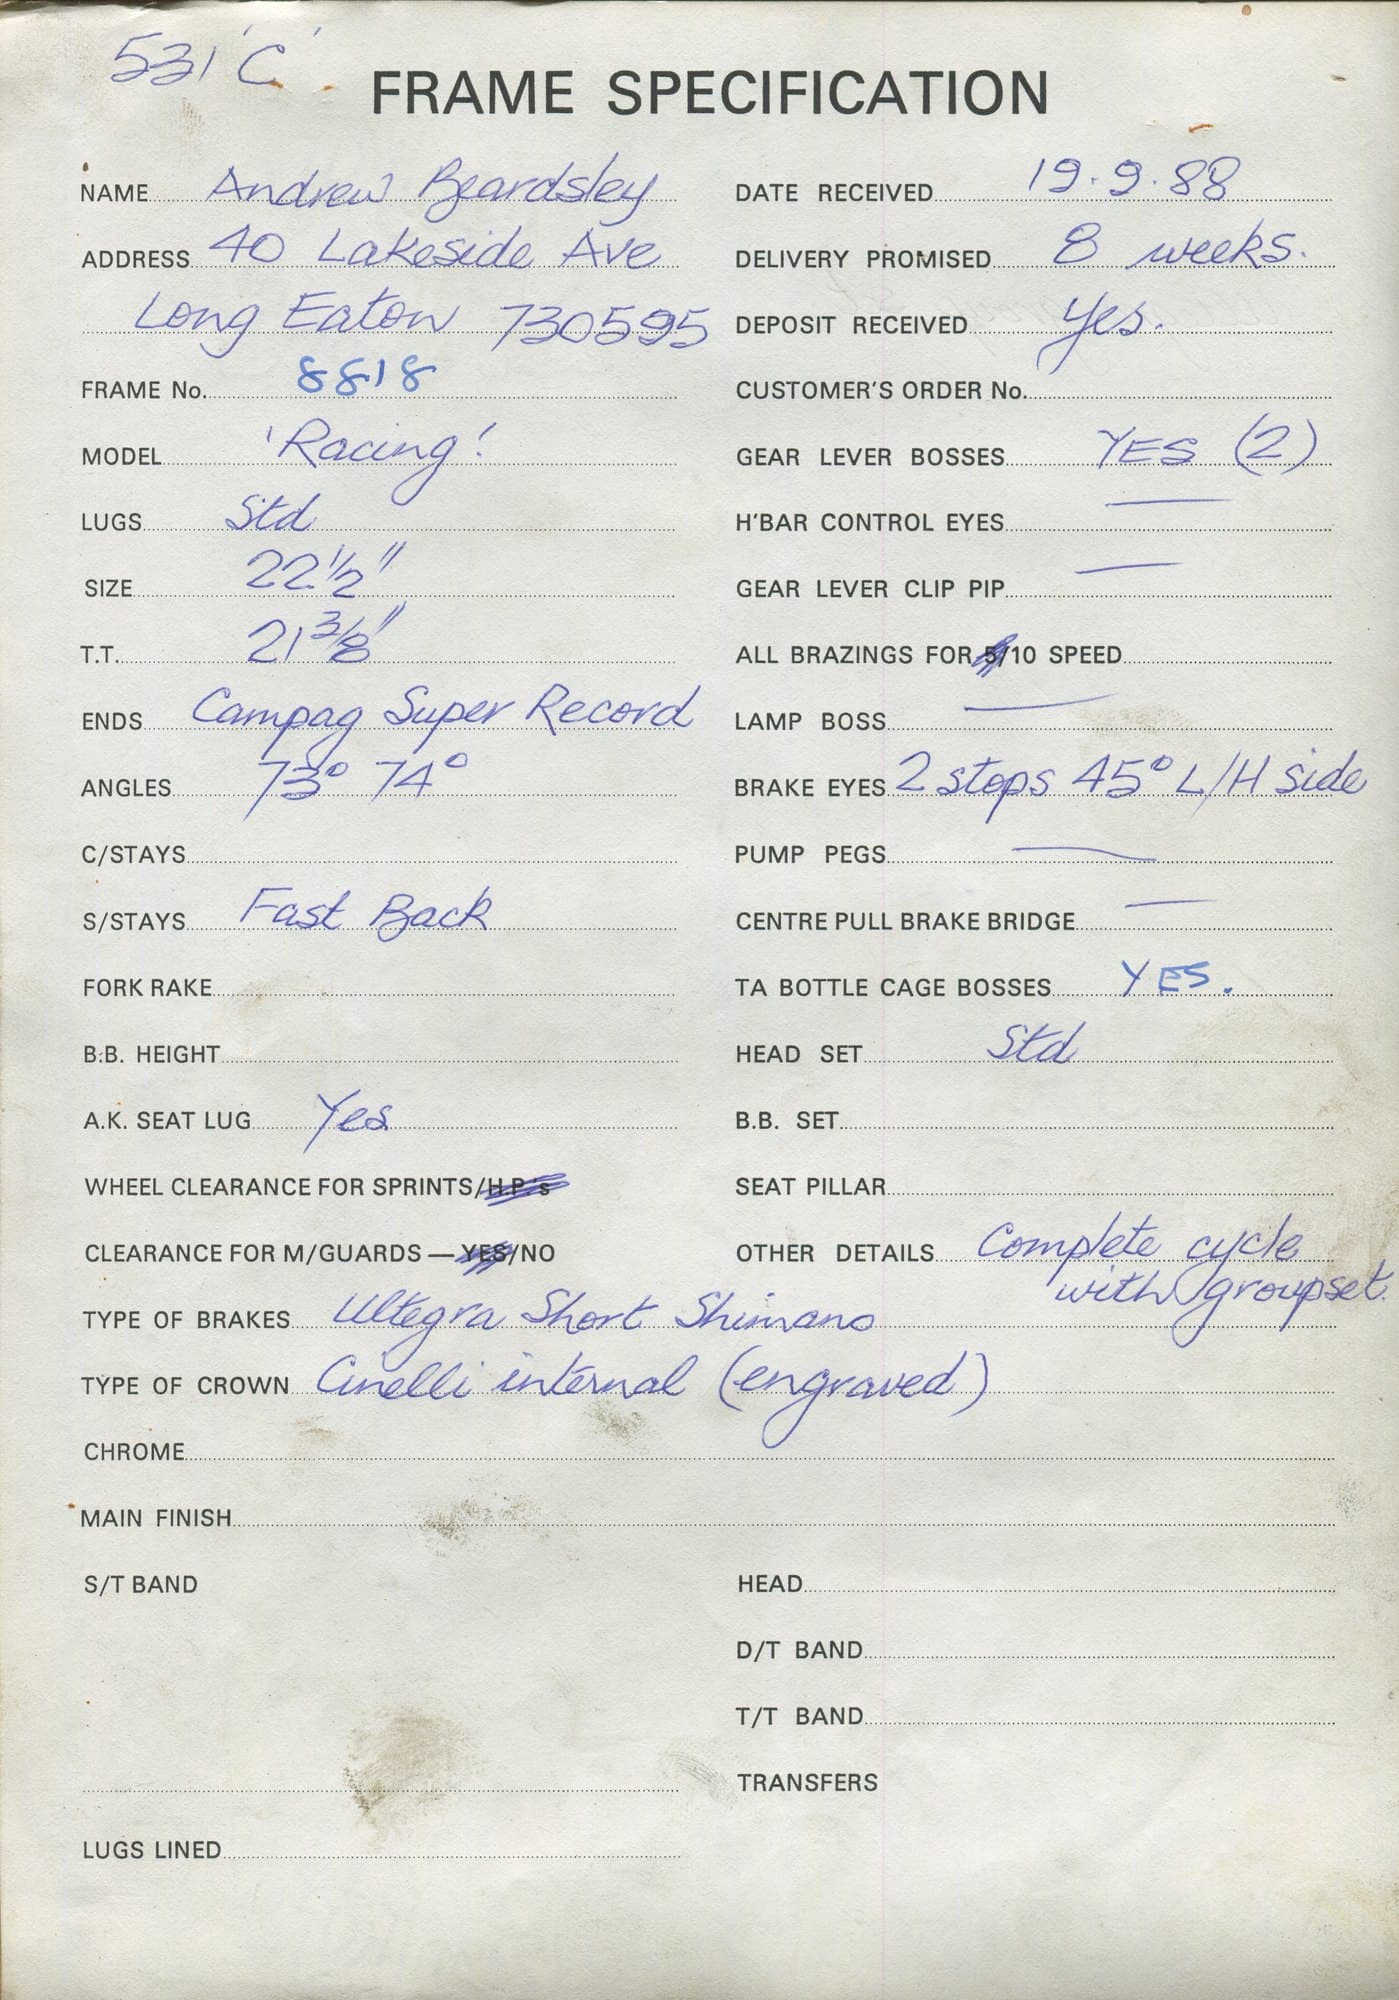 531 'C'
FRAME SPECIFICATION
NAME Andrew Beardsley
ADDRESS 40 Lakeside Ave
Long Eaton 730595
FRAME No. 8818
MODEL 'Racing'
LUGS Std
SIZE 22 1/2"
T.T. 21 3/8"
ENDS Campag Super Record
ANGLES 73° 74°
C/STAYS
S/STAYS Fast Back
FORK RAKE
B.B. HEIGHT
A.K. SEAT LUG Yes
WHEEL CLEARANCE FOR SPRINTS/H.P.'s
CLEARANCE FOR M/GUARDS — YES/NO
DATE RECEIVED 19.9.88
DELIVERY PROMISED 8 weeks.
DEPOSIT RECEIVED Yes.
CUSTOMER'S ORDER No.
GEAR LEVER BOSSES YES (2)
H'BAR CONTROL EYES —
GEAR LEVER CLIP PIP —
ALL BRAZINGS FOR 5/10 SPEED
LAMP BOSS —
BRAKE EYES 2 stops 45° L/H side
PUMP PEGS —
CENTRE PULL BRAKE BRIDGE —
TA BOTTLE CAGE BOSSES YES.
HEAD SET Std
B.B. SET
SEAT PILLAR
OTHER DETAILS Complete cycle
with groupset.
TYPE OF BRAKES Ultegra Short Shimano
TYPE OF CROWN Cinelli internal (engraved)
CHROME
MAIN FINISH
S/T BAND
LUGS LINED
HEAD
D/T BAND
T/T BAND
TRANSFERS